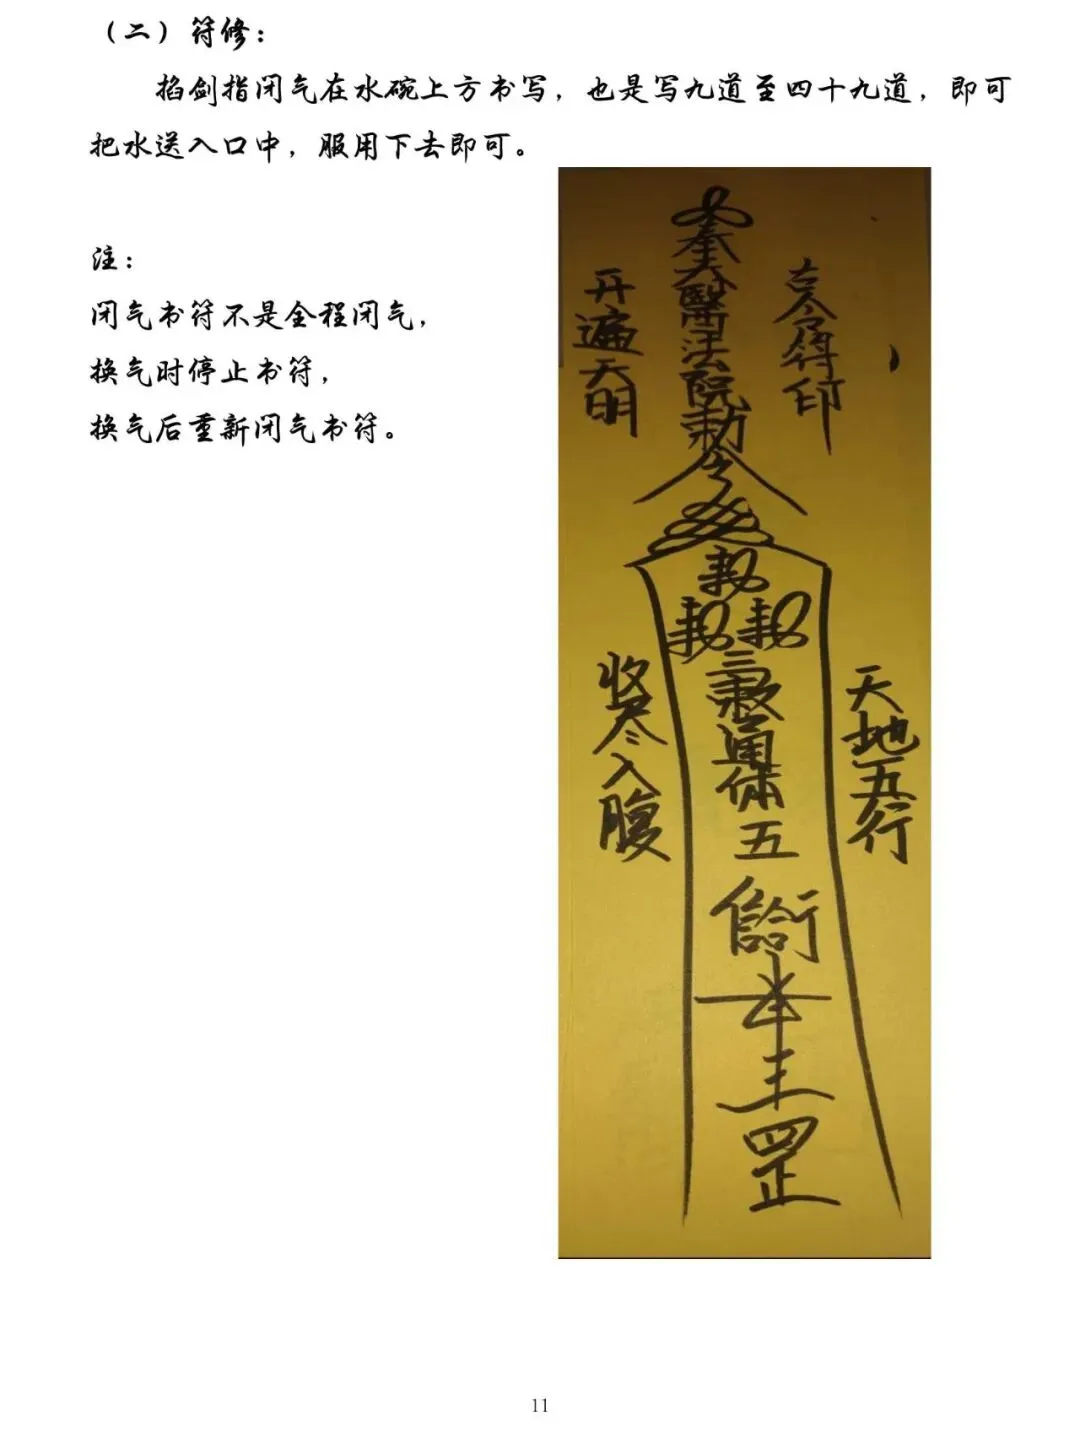 （二）符修：
掐剑指闭气在水碗上方书写，也是写九道至四十九道，即可
把水送入口中，服用下去即可。
注：
闭气书符不是全程闭气，
换气时停止书符，
换气后重新闭气书符。
奉天醫法院勅令
开遍天明
符印
三敕通体五
收尽入腹
天地五行
罡
11